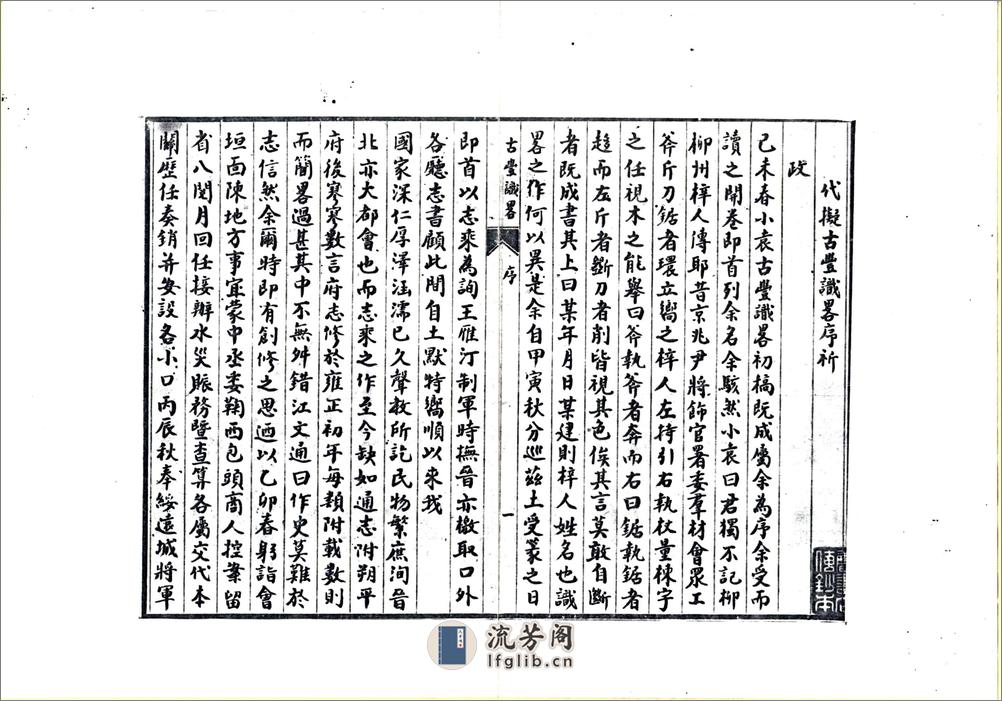 代擬古豐識畧序祈
政
己未春小袁古豐識畧初稿既成屬余為序余受而
讀之開卷即首列余名余駭然小袁曰君獨不記柳
柳州梓人傳耶昔京兆尹將飾官署委羣材會眾工
斧斤刀鋸者環立嚮之梓人左持引右執杖量棟宇
之任視木之能舉曰斧執斧者奔而右曰鋸執鋸者
趨而左斤者斲刀者削皆視其色俟其言莫敢自斷
者既成書其上曰某年月日某建則梓人姓名也識
畧之作何以異是余自甲寅秋分巡茲土受篆之日
古豐識畧 序 一
即首以志乘為詢王雁汀制軍時撫晉亦檄取口外
各廳志書顧此閒自土默特嚮順以來我
國家深仁厚澤涵濡已久聲教所訖民物繁庶洵晉
北亦大都會也而志乘之作至今缺如通志附朔平
府後寥寥數言府志修於雍正初年每類附載數則
而簡畧過甚其中不無舛錯江文通曰作史莫難於
志信然余爾時即有創修之思迺以乙卯春躬詣會
垣面陳地方事宜蒙中丞委鞠西包頭商人控案留
省八閱月回任接辦水災賑務暨查算各屬交代本
關歷任奏銷并安設各小口丙辰秋奉綏遠城將軍
流芳阁
lfglib.cn